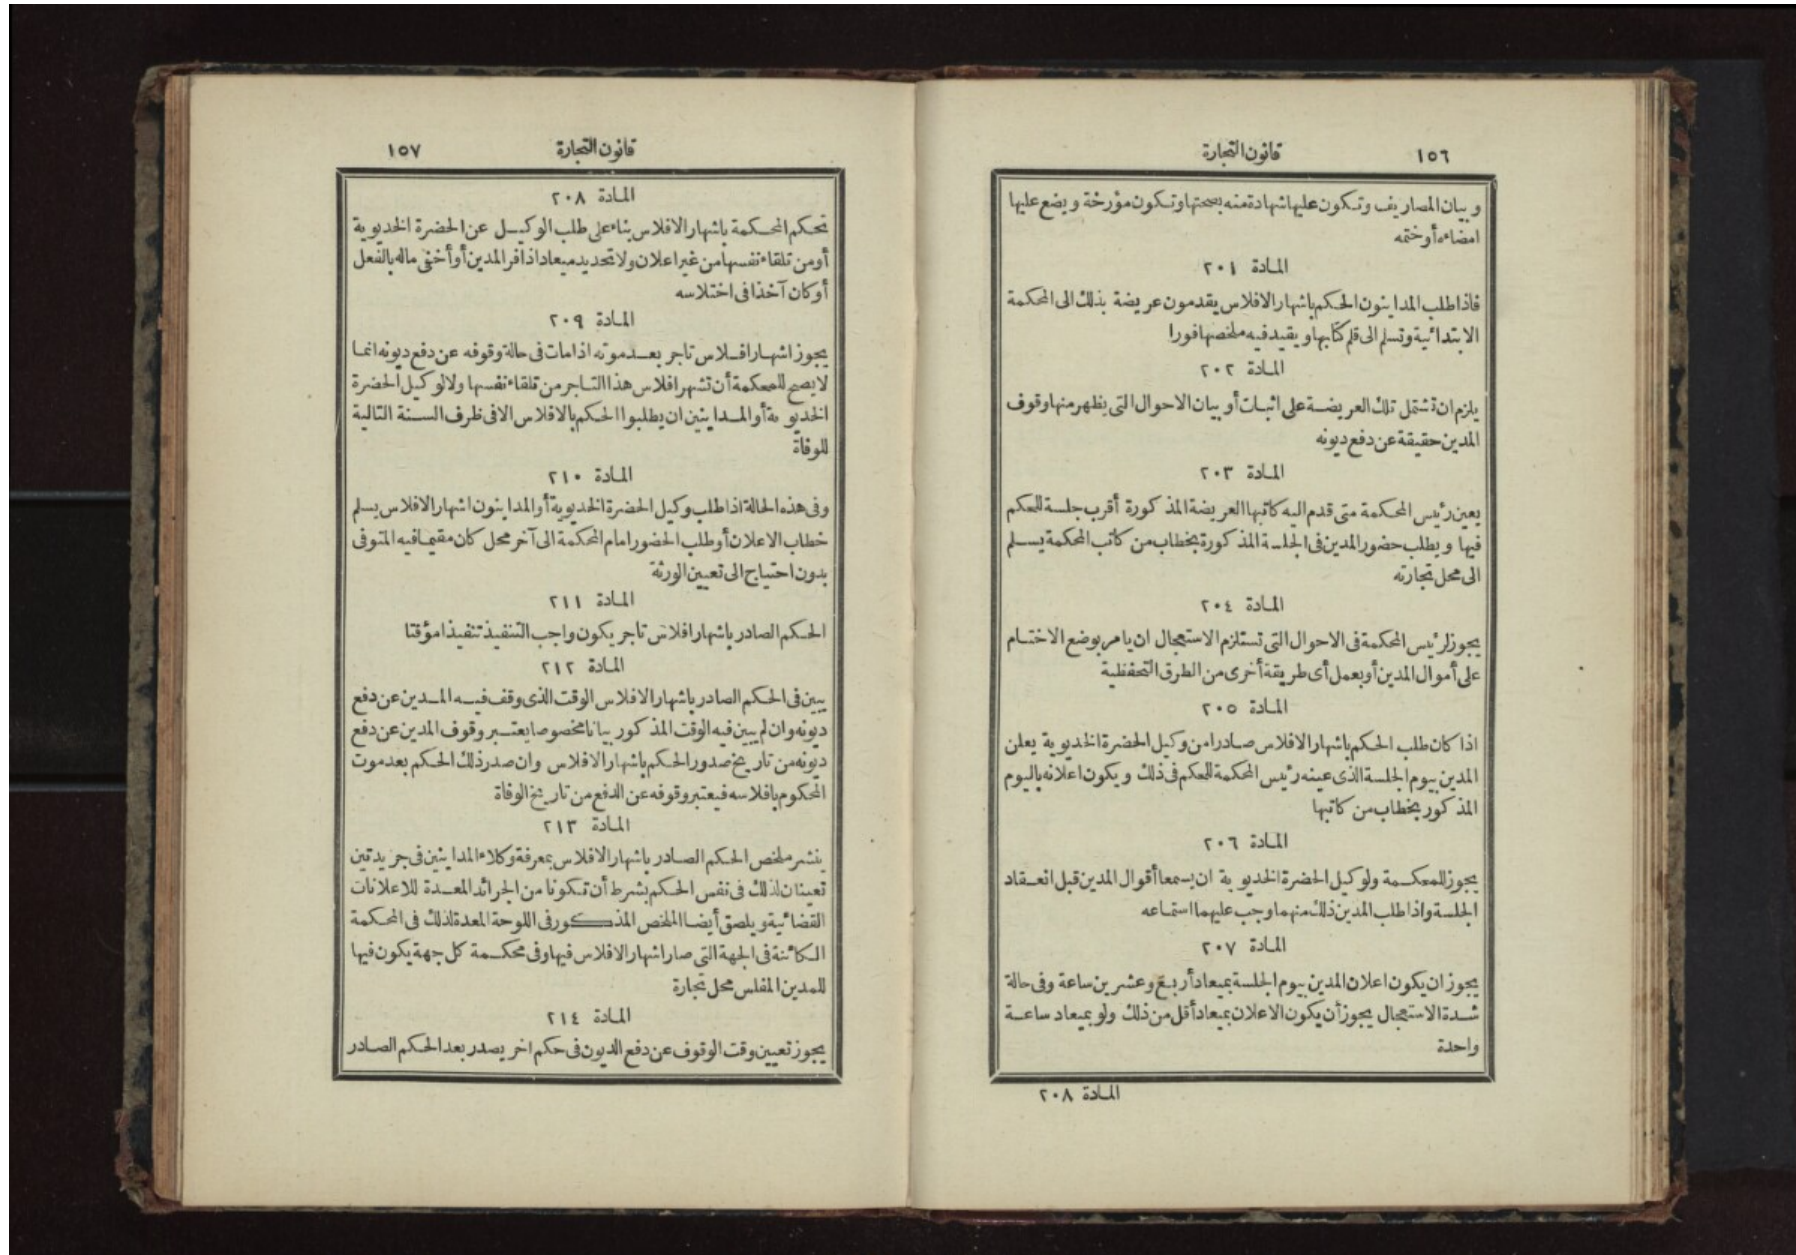 ١٥٦
قانون التجارة
وبيان المصاريف وتكون عليها شهادة منه بصحتها وتكون مؤرخة ويضع عليها
امضاءه أوختمه
المادة ٢٠١
فاذا طلب المداينون الحكم باشهار الافلاس يقدمون عريضة بذلك الى المحكمة
الابتدائية وتسلم الى قلم كتابها ويقيد فيه ملخصها فورا
المادة ٢٠٢
يلزم ان تشتمل تلك العريضة على اثبات أو بيان الاحوال التى يظهر منها وقوف
المدين حقيقة عن دفع ديونه
المادة ٢٠٣
يعين رئيس المحكمة متى قدم اليه كاتبها العريضة المذكورة أقرب جلسة للحكم
فيها ويطلب حضور المدين فى الجلسة المذكورة بخطاب من كاتب المحكمة يسلم
الى محل تجارته
المادة ٢٠٤
يجوز لرئيس المحكمة فى الاحوال التى تستلزم الاستعجال ان يامر بوضع الاختام
على أموال المدين أو بعمل أى طريقة أخرى من الطرق التحفظية
المادة ٢٠٥
اذا كان طلب الحكم باشهار الافلاس صادرا من وكيل الحضرة الخديوية يعلن
المدين بيوم الجلسة الذى عينه رئيس المحكمة للحكم فى ذلك ويكون اعلانه باليوم
المذكور بخطاب من كاتبها
المادة ٢٠٦
يجوز للمحكمة ولوكيل الحضرة الخديوية ان يسمعا أقوال المدين قبل انعقاد
الجلسة واذا طلب المدين ذلك منهما وجب عليهما استماعه
المادة ٢٠٧
يجوز ان يكون اعلان المدين بيوم الجلسة بميعاد أربع وعشرين ساعة وفى حالة
شدة الاستعجال يجوز أن يكون الاعلان بميعاد أقل من ذلك ولو بميعاد ساعة
واحدة
المادة ٢٠٨
قانون التجارة
١٥٧
المادة ٢٠٨
تحكم المحكمة باشهار الافلاس بناء على طلب الوكيل عن الحضرة الخديوية
أو من تلقاء نفسها من غير اعلان ولا تحديد ميعاد اذا فر المدين أو أخفى ماله بالفعل
أو كان آخذا فى اختلاسه
المادة ٢٠٩
يجوز اشهار افلاس تاجر بعد موته اذا مات فى حالة وقوفه عن دفع ديونه انما
لا يصح للمحكمة أن تشهر افلاس هذا التاجر من تلقاء نفسها ولا لوكيل الحضرة
الخديوية أو المداينين ان يطلبوا الحكم بالافلاس الا فى ظرف السنة التالية
للوفاة
المادة ٢١٠
وفى هذه الحالة اذا طلب وكيل الحضرة الخديوية أو المداينون اشهار الافلاس يسلم
خطاب الاعلان أو طلب الحضور امام المحكمة الى آخر محل كان مقيما فيه المتوفى
بدون احتياج الى تعيين الورثة
المادة ٢١١
الحكم الصادر باشهار افلاس تاجر يكون واجب التنفيذ تنفيذا مؤقتا
المادة ٢١٢
يبين فى الحكم الصادر باشهار الافلاس الوقت الذى وقف فيه المدين عن دفع
ديونه وان لم يبين فيه الوقت المذكور بيانا مخصوصا يعتبر وقوف المدين عن دفع
ديونه من تاريخ صدور الحكم باشهار الافلاس وان صدر ذلك الحكم بعد موت
المحكوم بافلاسه فيعتبر وقوفه عن الدفع من تاريخ الوفاة
المادة ٢١٣
ينشر ملخص الحكم الصادر باشهار الافلاس بمعرفة وكلاء المداينين فى جريدتين
تعينان لذلك فى نفس الحكم بشرط أن تكونا من الجرائد المعدة للاعلانات
القضائية ويلصق أيضا الملخص المذكور فى اللوحة المعدة لذلك فى المحكمة
الكائنة فى الجهة التى صار اشهار الافلاس فيها وفى محكمة كل جهة يكون فيها
للمدين المفلس محل تجارة
المادة ٢١٤
يجوز تعيين وقت الوقوف عن دفع الديون فى حكم اخر يصدر بعد الحكم الصادر